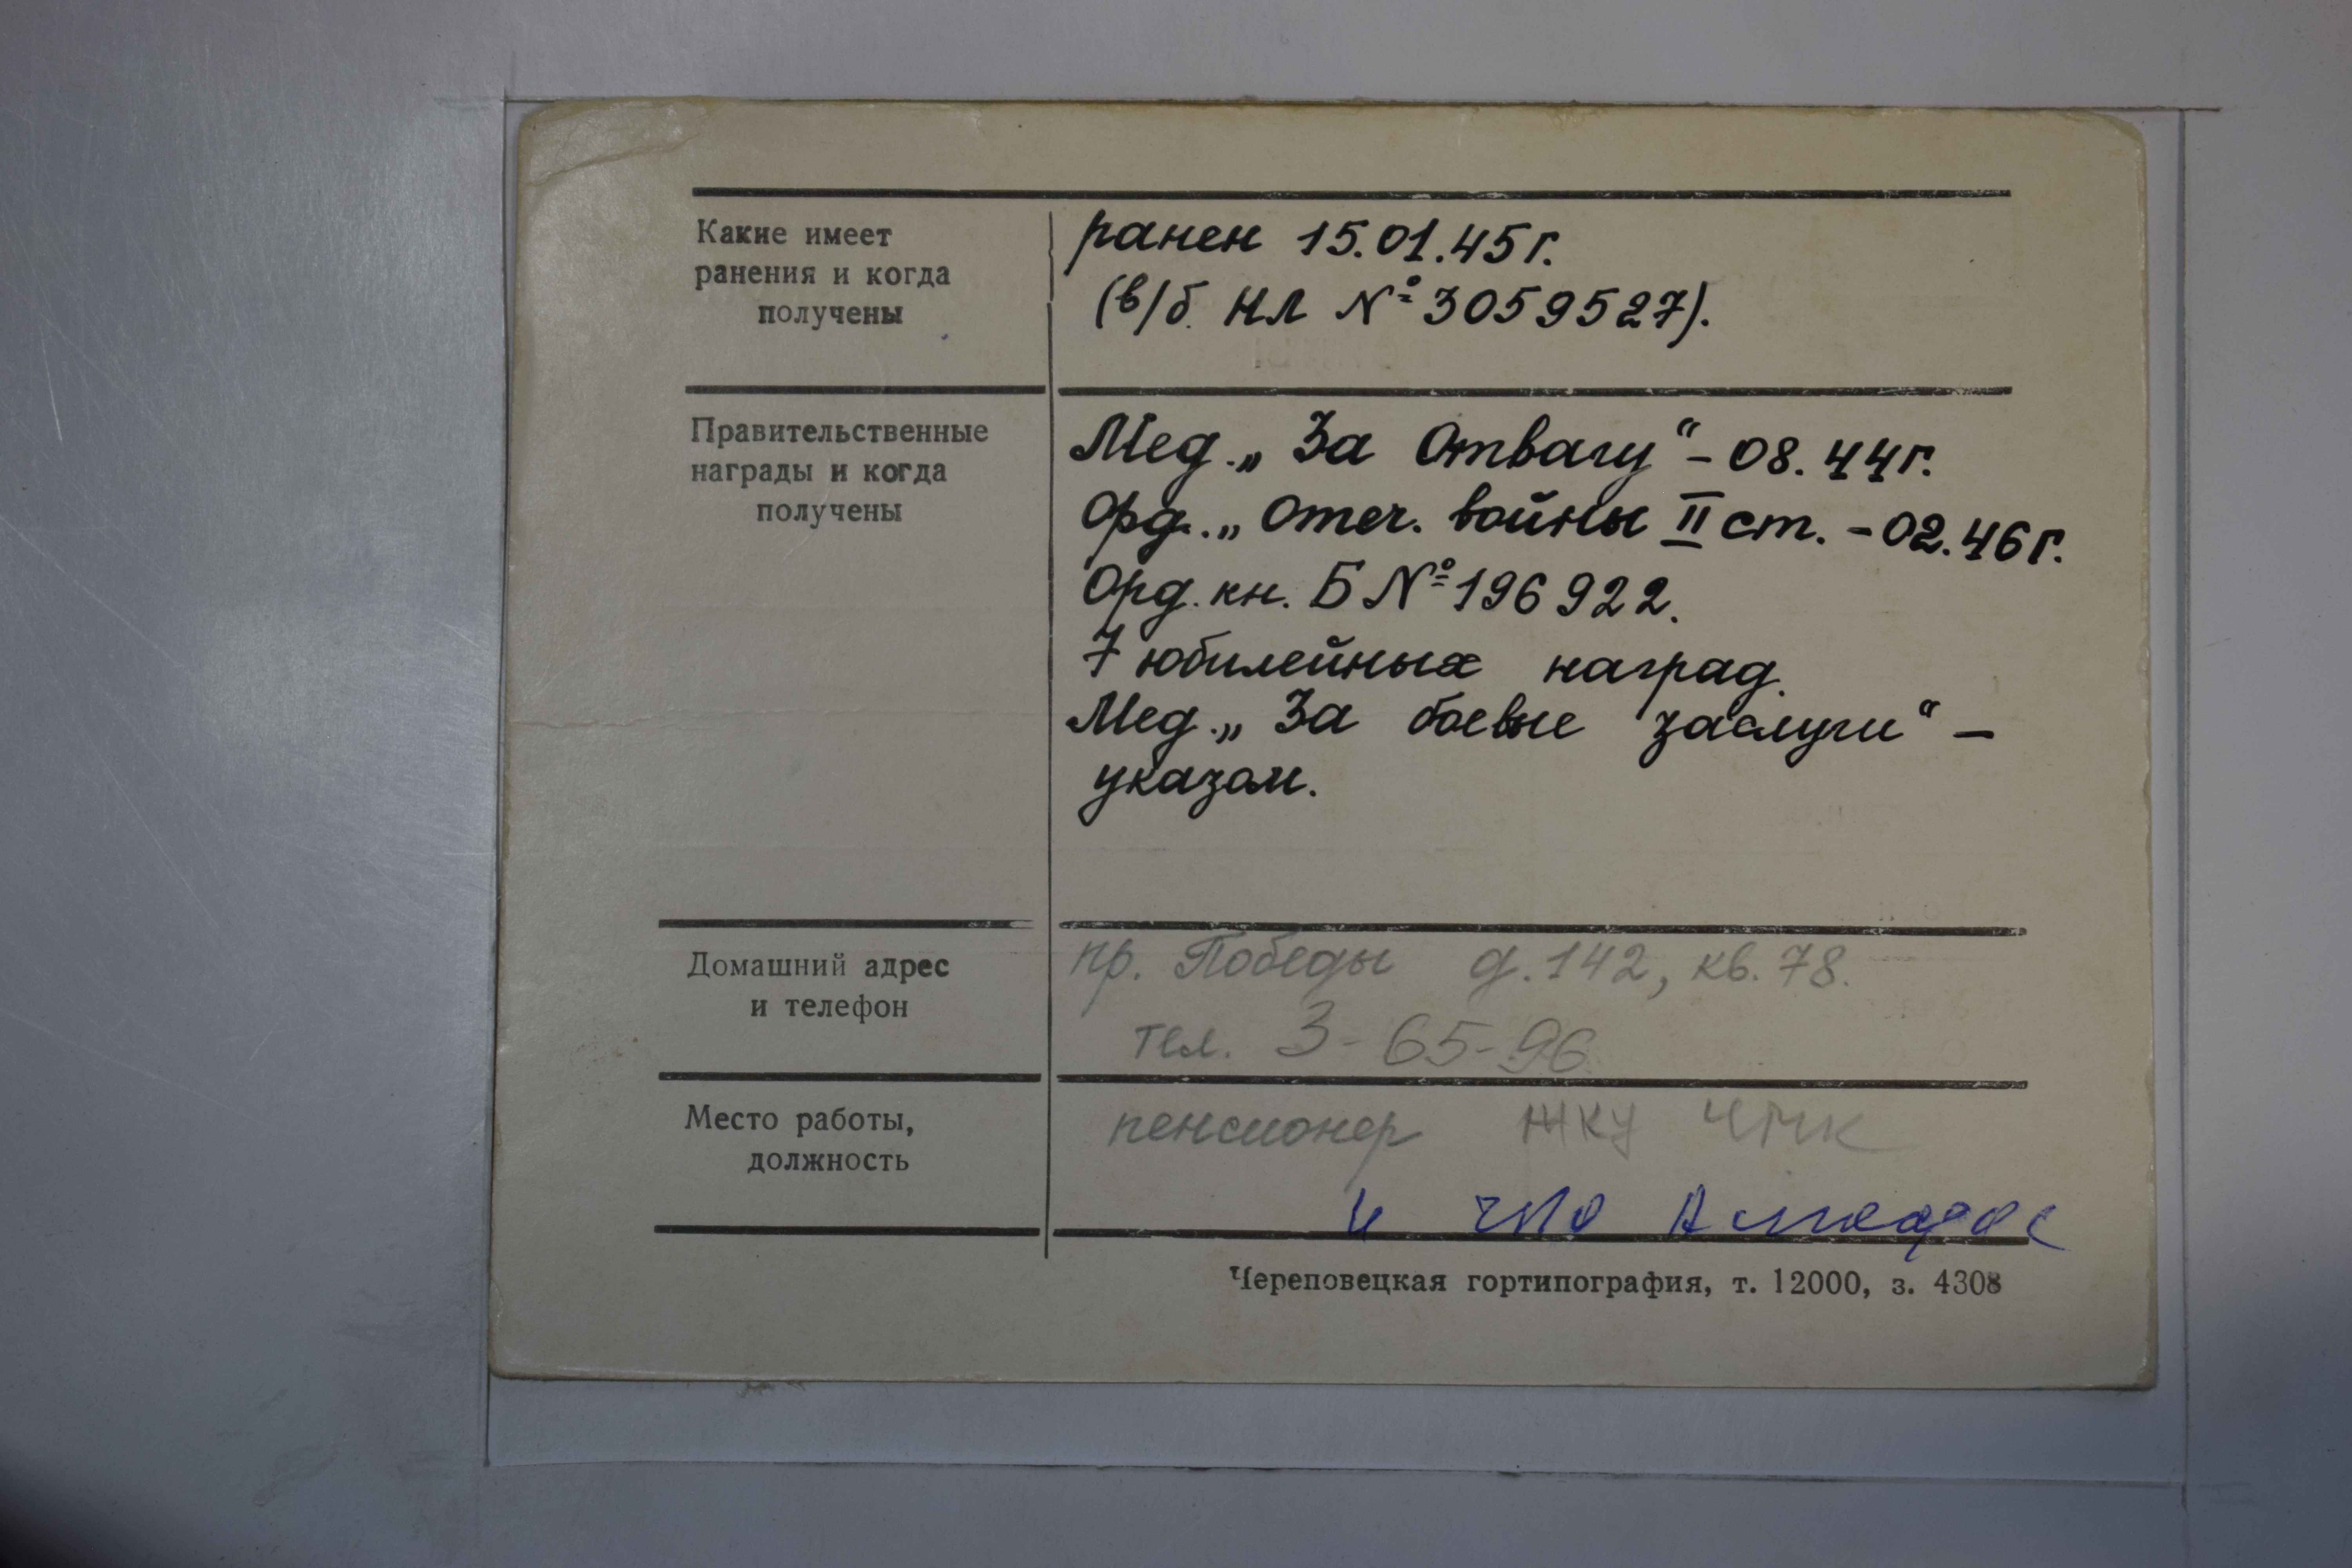 Какие имеет
ранения и когда
получены
ранен 15.01.45г.
(в/б. НЛ № 3059527).
Правительственные
награды и когда
получены
Мед. „За Отвагу“ - 08.44г.
Орд. „Отеч. войны II ст. - 02.46г.
Орд. кн. Б № 196922.
7 юбилейных наград.
Мед. „За боевые заслуги“ -
указом.
Домашний адрес
и телефон
пр. Победы д. 142, кв. 78.
тел. 3-65-96
Место работы,
должность
пенсионер ЖКУ ЧМК
Череповецкая гортипография, т. 12000, з. 4308